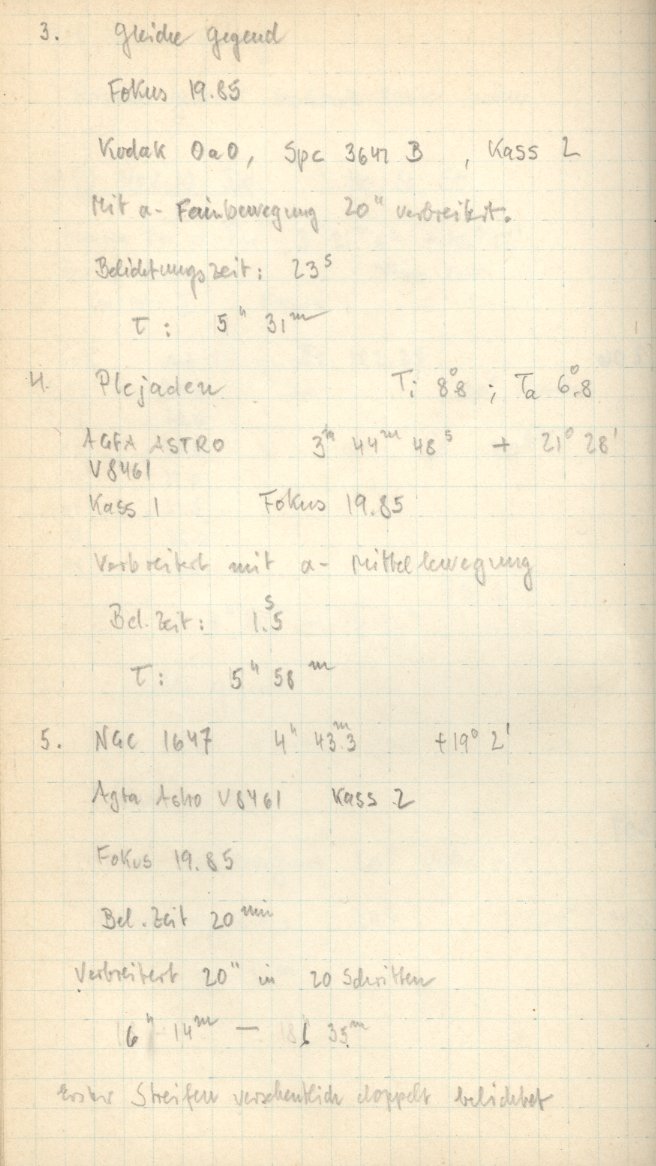 3. Gleiche Gegend
Fokus 19.85
Kodak OaO, Spc 3641 B , Kass 2
Mit α- Feinbewegung 20" verbreitert.
Belichtungszeit: 23ˢ
τ : 5ʰ 31ᵐ
4. Plejaden Ti 8°.8 ; Ta 6°.8
AGFA ASTRO 3ᵐ 44ᵐ 48ˢ + 21° 28'
V8461
Kass 1 Fokus 19.85
Verbreitert mit α- Mittelbewegung
Bel. Zeit: 1ˢ.5
τ : 5ʰ 58ᵐ
5. NGC 1647 4ʰ 43ᵐ.3 +19° 2'
Agfa Astro V8461 Kass 2
Fokus 19.85
Bel. Zeit 20ᵐⁱⁿ
Verbreitert 20" in 20 Schritten
6ʰ 14ᵐ — 6 35ᵐ
Erster Streifen versehentlich doppelt belichtet